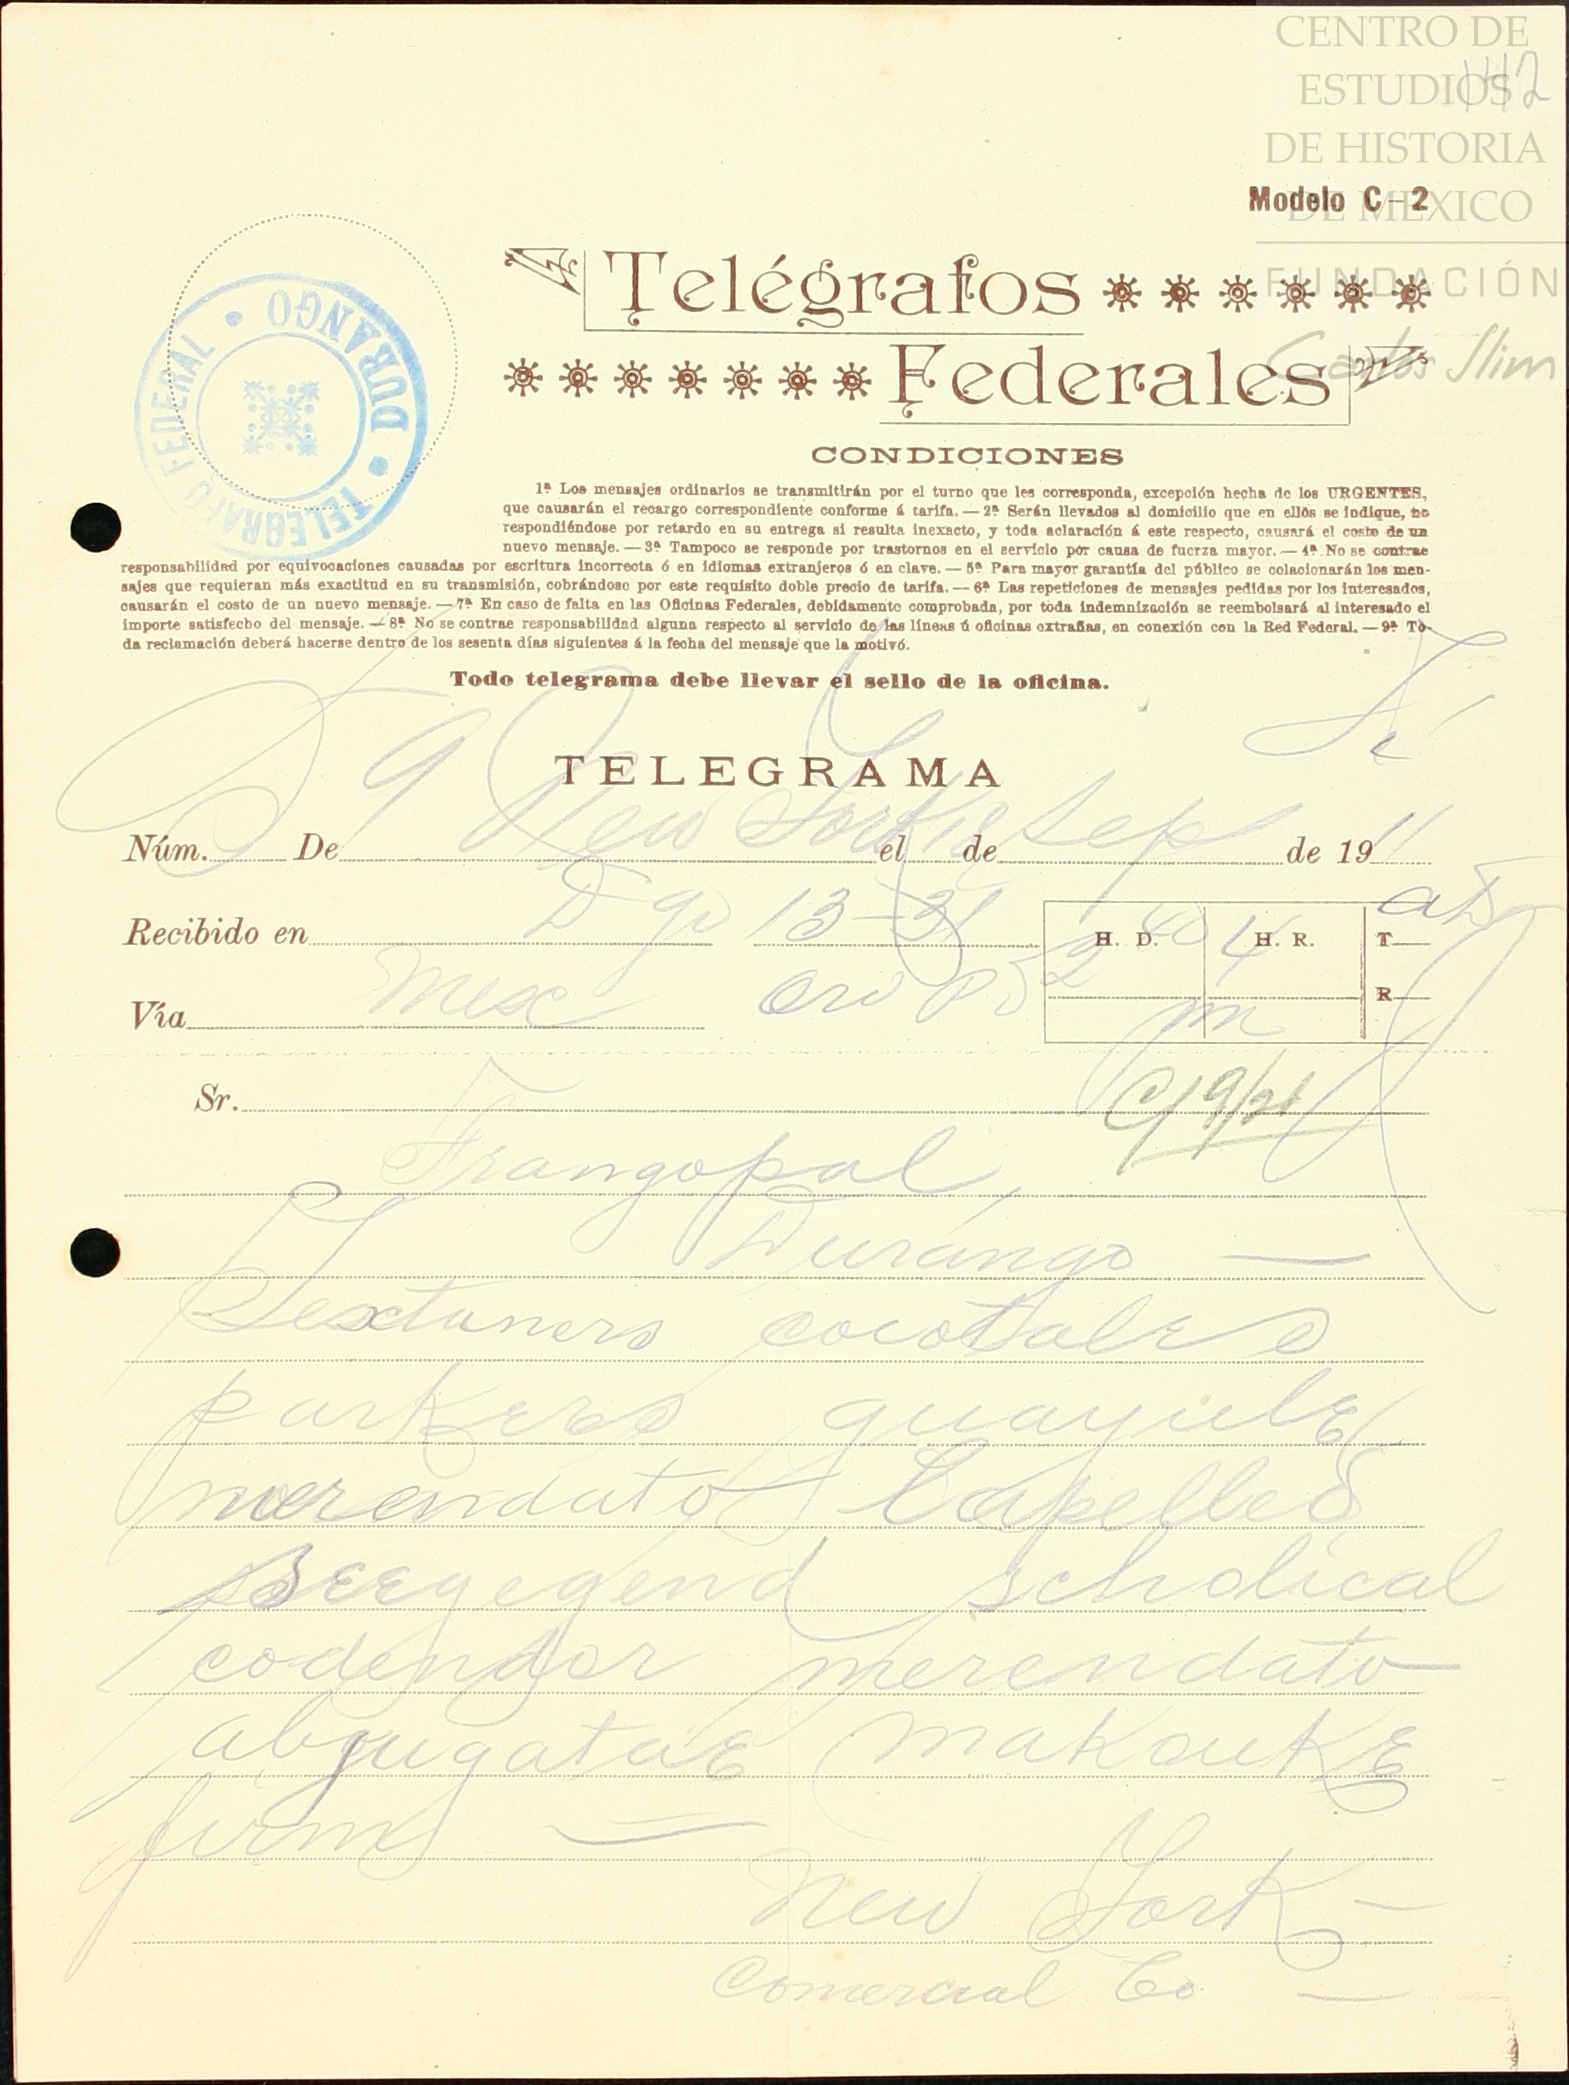 CENTRO DE
ESTUDIOS
DE HISTORIA
DE MEXICO
FUNDACIÓN
Carlos Slim
142
Modelo C-2
TELEGRAFO FEDERAL • DURANGO •
Telégrafos
Federales
CONDICIONES
1ª Los mensajes ordinarios se transmitirán por el turno que les corresponda, excepción hecha de los URGENTES,
que causarán el recargo correspondiente conforme á tarifa. — 2ª Serán llevados al domicilio que en ellos se indique, no
respondiéndose por retardo en su entrega si resulta inexacto, y toda aclaración á este respecto, causará el costo de un
nuevo mensaje. — 3ª Tampoco se responde por trastornos en el servicio por causa de fuerza mayor. — 4ª No se contrae
responsabilidad por equivocaciones causadas por escritura incorrecta ó en idiomas extranjeros ó en clave. — 5ª Para mayor garantía del público se colacionarán los men-
sajes que requieran más exactitud en su transmisión, cobrándose por este requisito doble precio de tarifa. — 6ª Las repeticiones de mensajes pedidas por los interesados,
causarán el costo de un nuevo mensaje. — 7ª En caso de falta en las Oficinas Federales, debidamente comprobada, por toda indemnización se reembolsará al interesado el
importe satisfecho del mensaje. — 8ª No se contrae responsabilidad alguna respecto al servicio de las líneas ú oficinas extrañas, en conexión con la Red Federal. — 9ª To-
da reclamación deberá hacerse dentro de los sesenta días siguientes á la fecha del mensaje que la motivó.
Todo telegrama debe llevar el sello de la oficina.
TELEGRAMA
Núm. 9 De New York el de Sep de 1911
Recibido en Dgo 13 H. D. 2 40 H. R. 4 T
Vía Mex m R
Sr. 9/21
Frangopal,
Durango —
Sextaners cocotales
parkers guayule
merendato Capelled
seegegend scholical
codendor merendato
abjugatae makauke
firms —
New York —
Comercial Co —